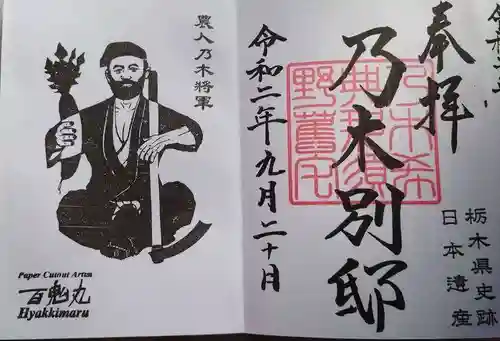 奉拝
栃木県史跡
日本遺産
乃木別邸
乃木希
典那須
野舊宅
令和二年九月二十日
農人乃木將軍
Paper Cutout Artist
百鬼丸
Hyakkimaru